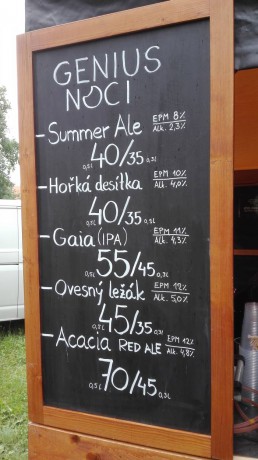 GENIUS
NOCI
- Summer Ale EPM 8% Alk. 2,3%
40/35 0,3L
- Hořká desítka EPM 10% Alk. 4,0%
0,5L 40/35 0,3L
- Gaia (IPA) EPM 11% Alk. 4,3%
0,5L 55/45 0,3L
- Ovesný ležák EPM 12% Alk. 5,0%
0,5L 45/35 0,3L
- Acacia RED ALE EPM 12% Alk. 4,8%
0,5L 70/45 0,3L